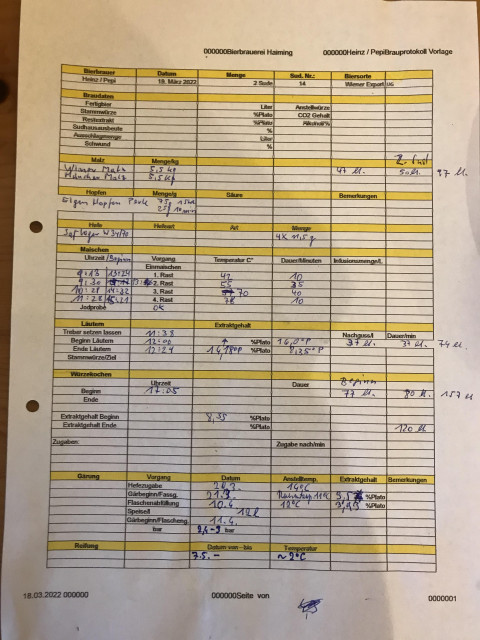 000000Bierbrauerei Haiming 000000Heinz / PepiBrauprotokoll Vorlage
Bierbrauer Datum Menge Sud. Nr.: Biersorte
Heinz / Pepi 19. März 2022 2 Sude 14 Wiener Export UG
Braudaten
Fertigbier Liter Anstellwürze
Stammwürze %Plato CO2 Gehalt
Restextrakt %Plato Alkohol%
Sudhausausbeute %
Ausschlagmenge Liter
Schwund %
Malz Menge/kg
Wiener Malz 5,5 kg 47 l. 50 l. 97 l.
Münchner Malz 5,5 kg
Hopfen Menge/g Säure Bemerkungen
Eigen Hopfen 75g
25g 10 min
Hefe Hefeart Art Menge
Saflager W34/70 4x 11,5 g
Maischen
Uhrzeit / Beginn Vorgang Temperatur C° Dauer/Minuten Infusionsmenge/L
Einmaischen
9:13 13:24 1. Rast 42 10
9:30 2. Rast 55 35
10:28 14:32 3. Rast 70 40
11:28 15:21 4. Rast 78 10
Jodprobe OK
Läutern Extraktgehalt
Treber setzen lassen 11:38 Nachguss/l Dauer/min
Beginn Läutern 12:00 %Plato 16,0°P 37 l. 37 l. 74 l.
Ende Läutern 12:24 %Plato 8,25°P
Stammwürze/Ziel
Würzekochen
Uhrzeit Dauer Beginn
Beginn 17:05 77 l. 80 l. 157 l
Ende
Extraktgehalt Beginn 8,35 %Plato
Extraktgehalt Ende %Plato 120 l
Zugaben: Zugabe nach/min
Gärung Vorgang Datum Anstelltemp. Extraktgehalt Bemerkungen
Hefezugabe 20.3. 14°C
Gärbeginn/Fassg. 21.3. 11°C %Plato
Flaschenabfüllung 10.4. 12°C %Plato
Speise/l 12 l
Gärbeginn/Flascheng. 11.4.
bar bar
Reifung Datum von – bis Temperatur
7.5. – ~ 2°C
18.03.2022 000000 000000Seite von 0000001